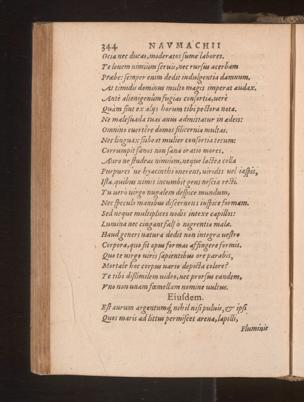 344 NAVMACHII
Otia nec ducas, moderatos sume labores.
Te leuem nimium seruis, nec rursus acerbam
Præbe: semper enim dedit indulgentia damnum,
At timidis dominus multo magis imperat audax.
Ante alienigenûm fugias consortia, verè
Quàm sint ex aliis horum tibi pectora nota.
Ne malesuada tuas anus admittatur in ædeis:
Omnino euertêre domos silicernia multas.
Nec linguax subeat mulier consortia tecum:
Corrumpit sanos non sana oratio mores.
Auro ne studeas nimium, neque lactea colla
Purpureus ne hyacinthus oneret, viridis vel iaspis,
Ista quibus nimis incumbit gens nescia recti.
Tu vero virgo nugalem despice mundum,
Nec speculi manibus discernens inspice formam.
Sed neque multiplices nodis intexe capillos:
Lumina nec cingant nigrentia mala.
Haud generi natura dedit non integra nostro
Corpora, quo sit opus formas affingere formis.
Que te virgo viris sapientibus ore parabis,
Mortale hoc corpus vario depicta colore?
Te tibi dissimilem video, nec prorsus eandem,
Vno non unam fœmellam nomine vultus.
Eiusdem.
Est aurum argentumq́ nihil nisi puluis, & ipsi
Quos maris ad littus permisces arena, lapilli,
Fluminis